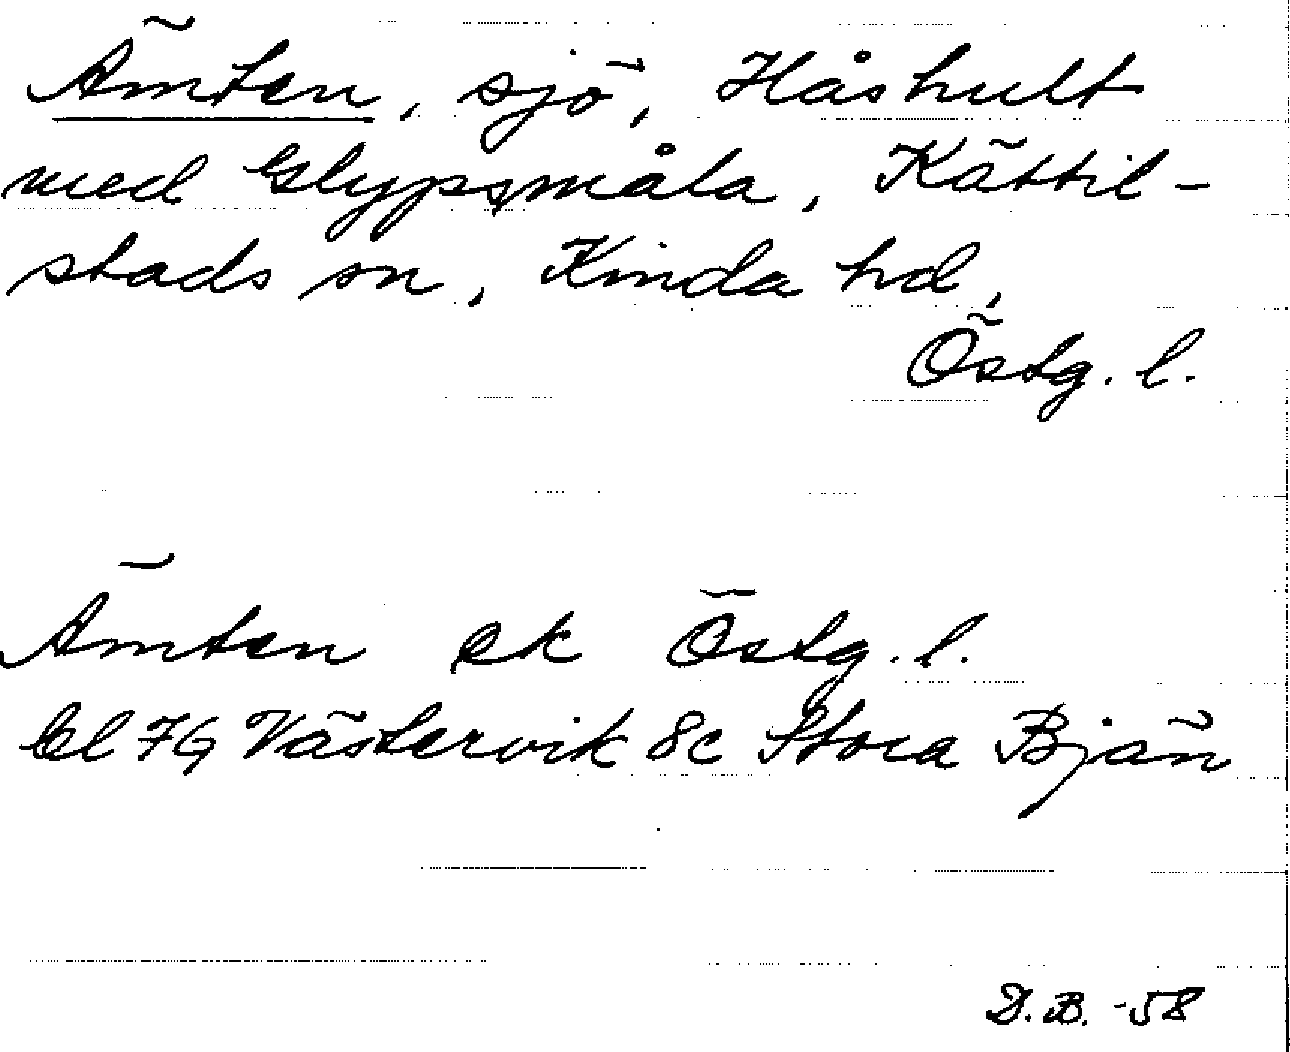 Ämten, sjö, Håshult
med Glypsmåla, Kättil-
stads sn, Kinda hd,
Östg. l.
Ämten ek Östg. l.
bl 7G Västervik 8c Stora Bjän
D.B. -58